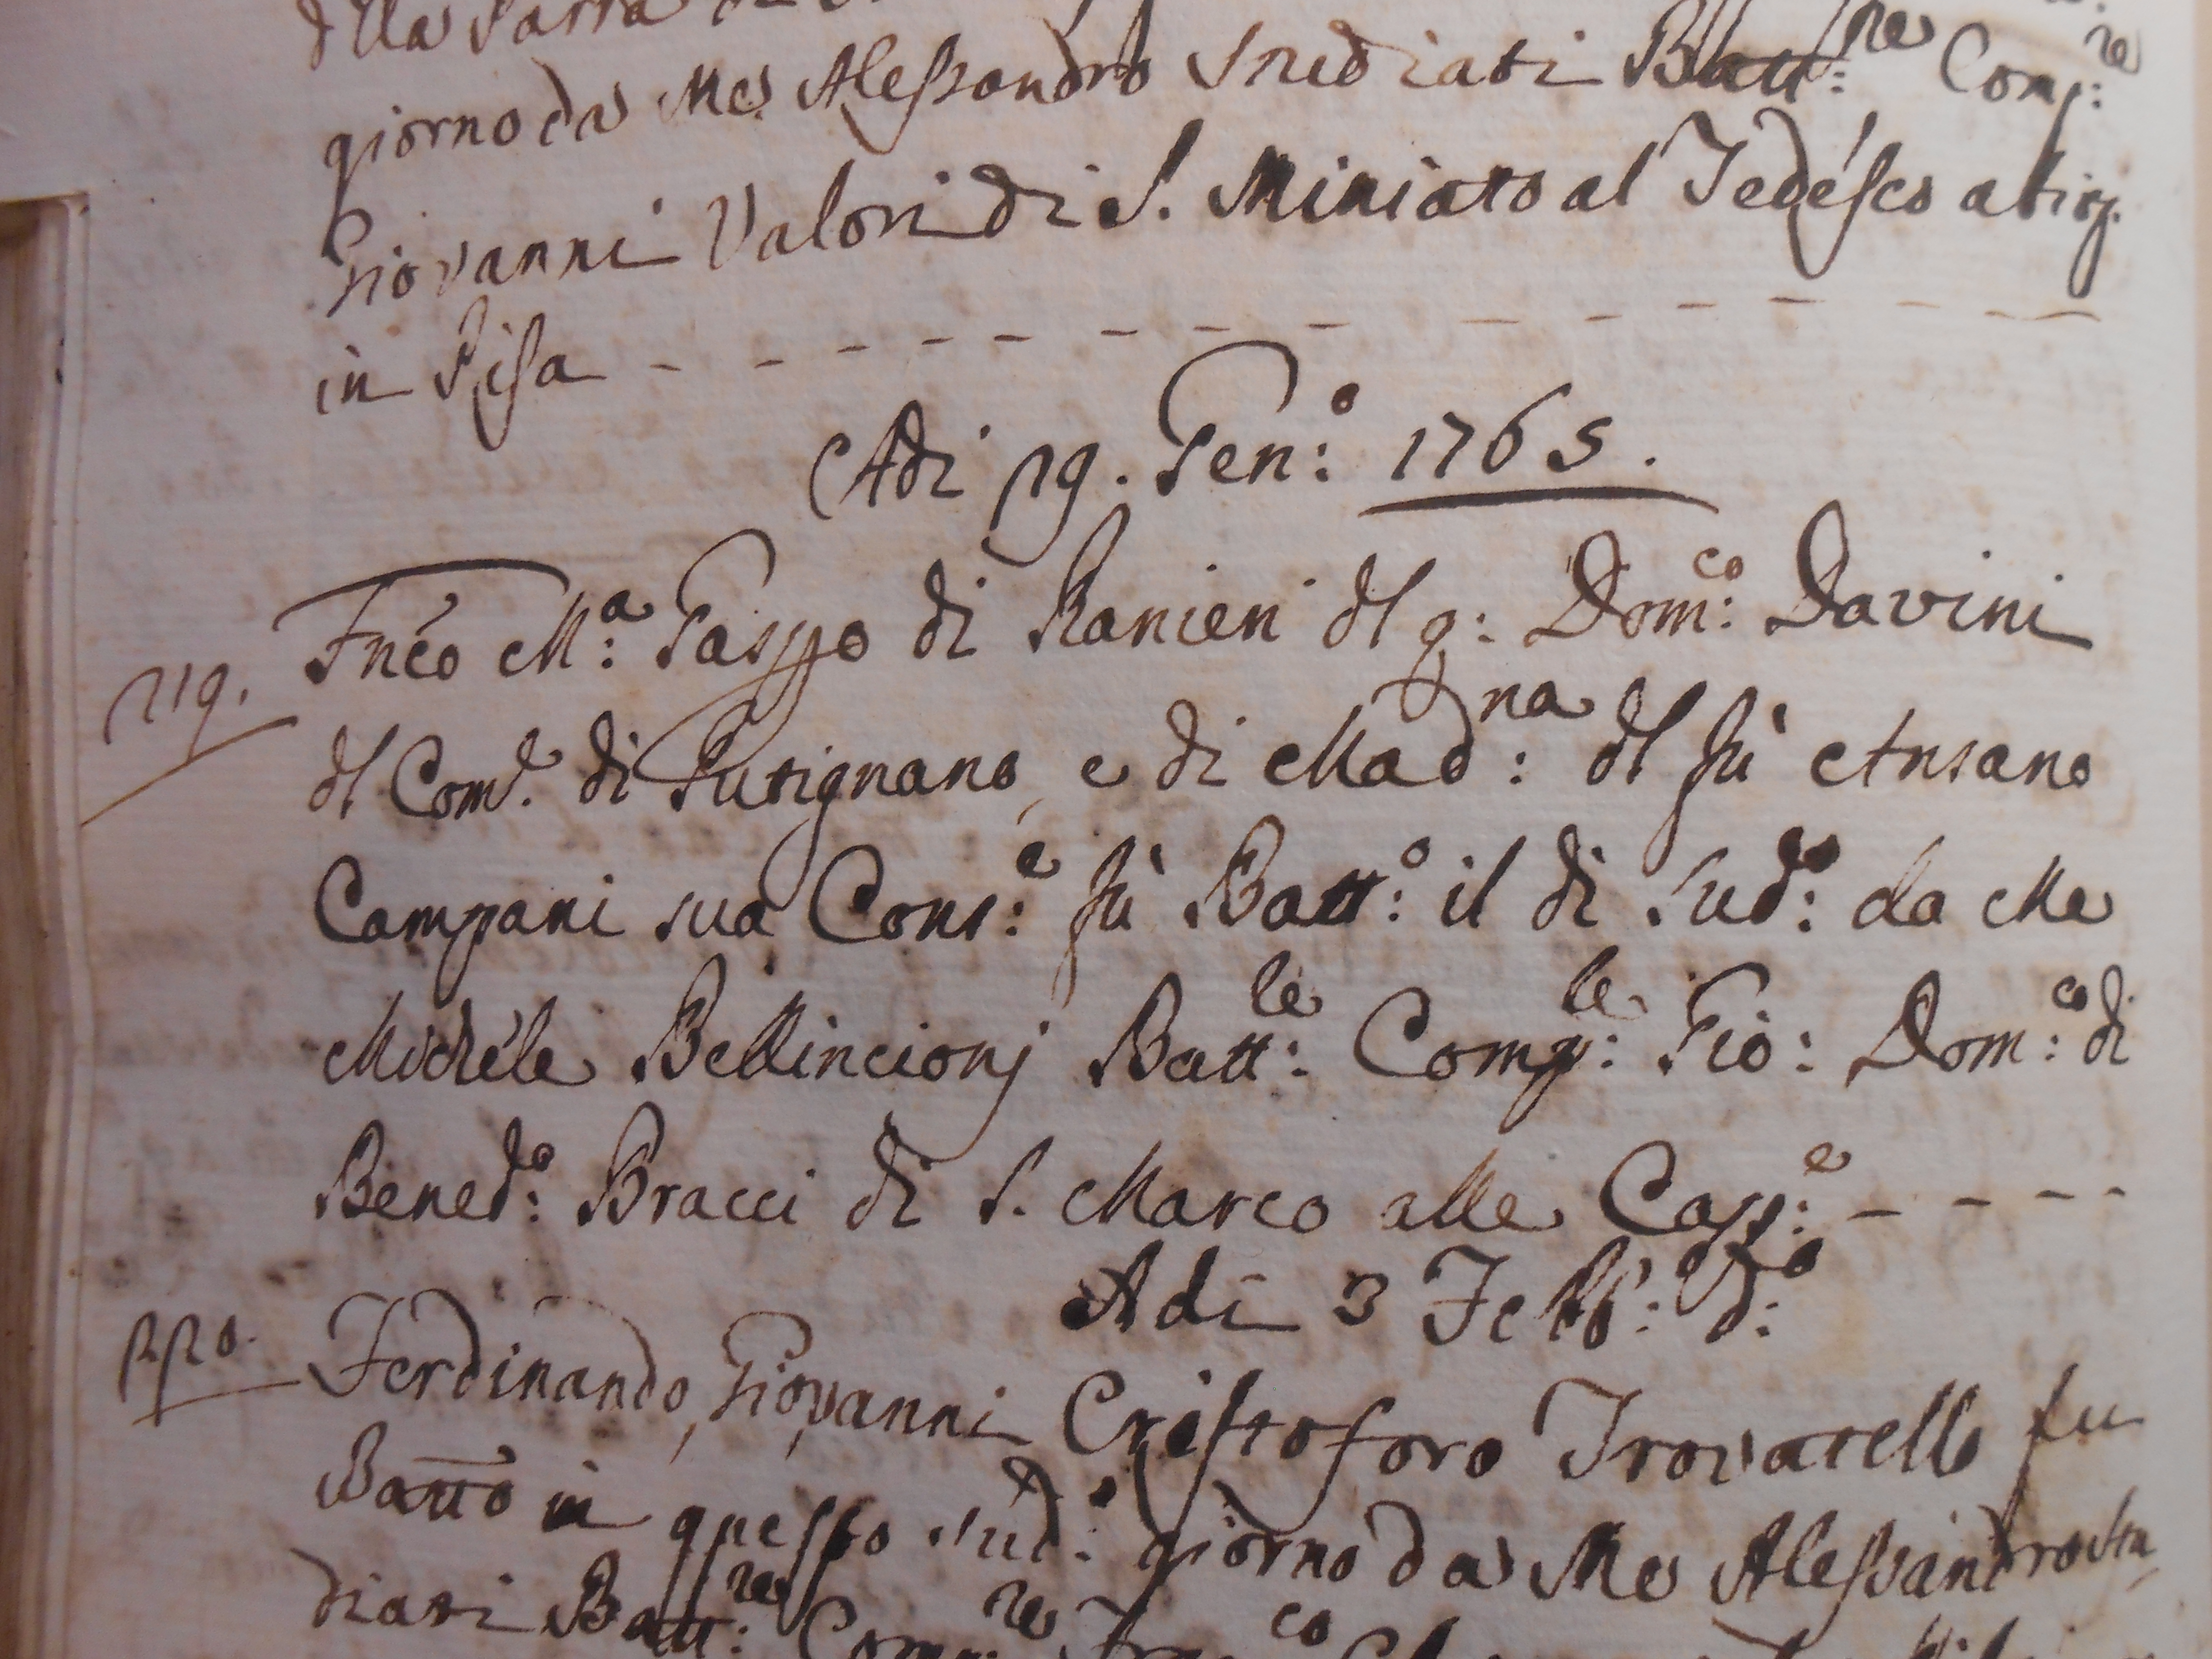 giorno da Me Alessandro Studiati Batt:re Comp:re
Giovanni Valori di S. Miniato al Tedesco abig.
in Pisa
Adi 29. Gen:o 1765.
219. Fnco M:a Gasppo di Ranieri dl q: Dom:co Davini
dl Com.e di Putignano, e di Mad:na dl fù Ansano
Campani sua Cons:e fù Batt:o il di Sud:o da Me
Michele Bellincionj Batt:le Comp:le Gio: Dom:co di
Bened:o Bracci di S. Marco alle Capp:e
Adi 3 Febb:o d:o
220. Ferdinando, Giovanni Cristoforo Trovatello fu
Batto in questo sud:o giorno da Me Alessandro Stu
diati Batt:re Comp:re Fran:co